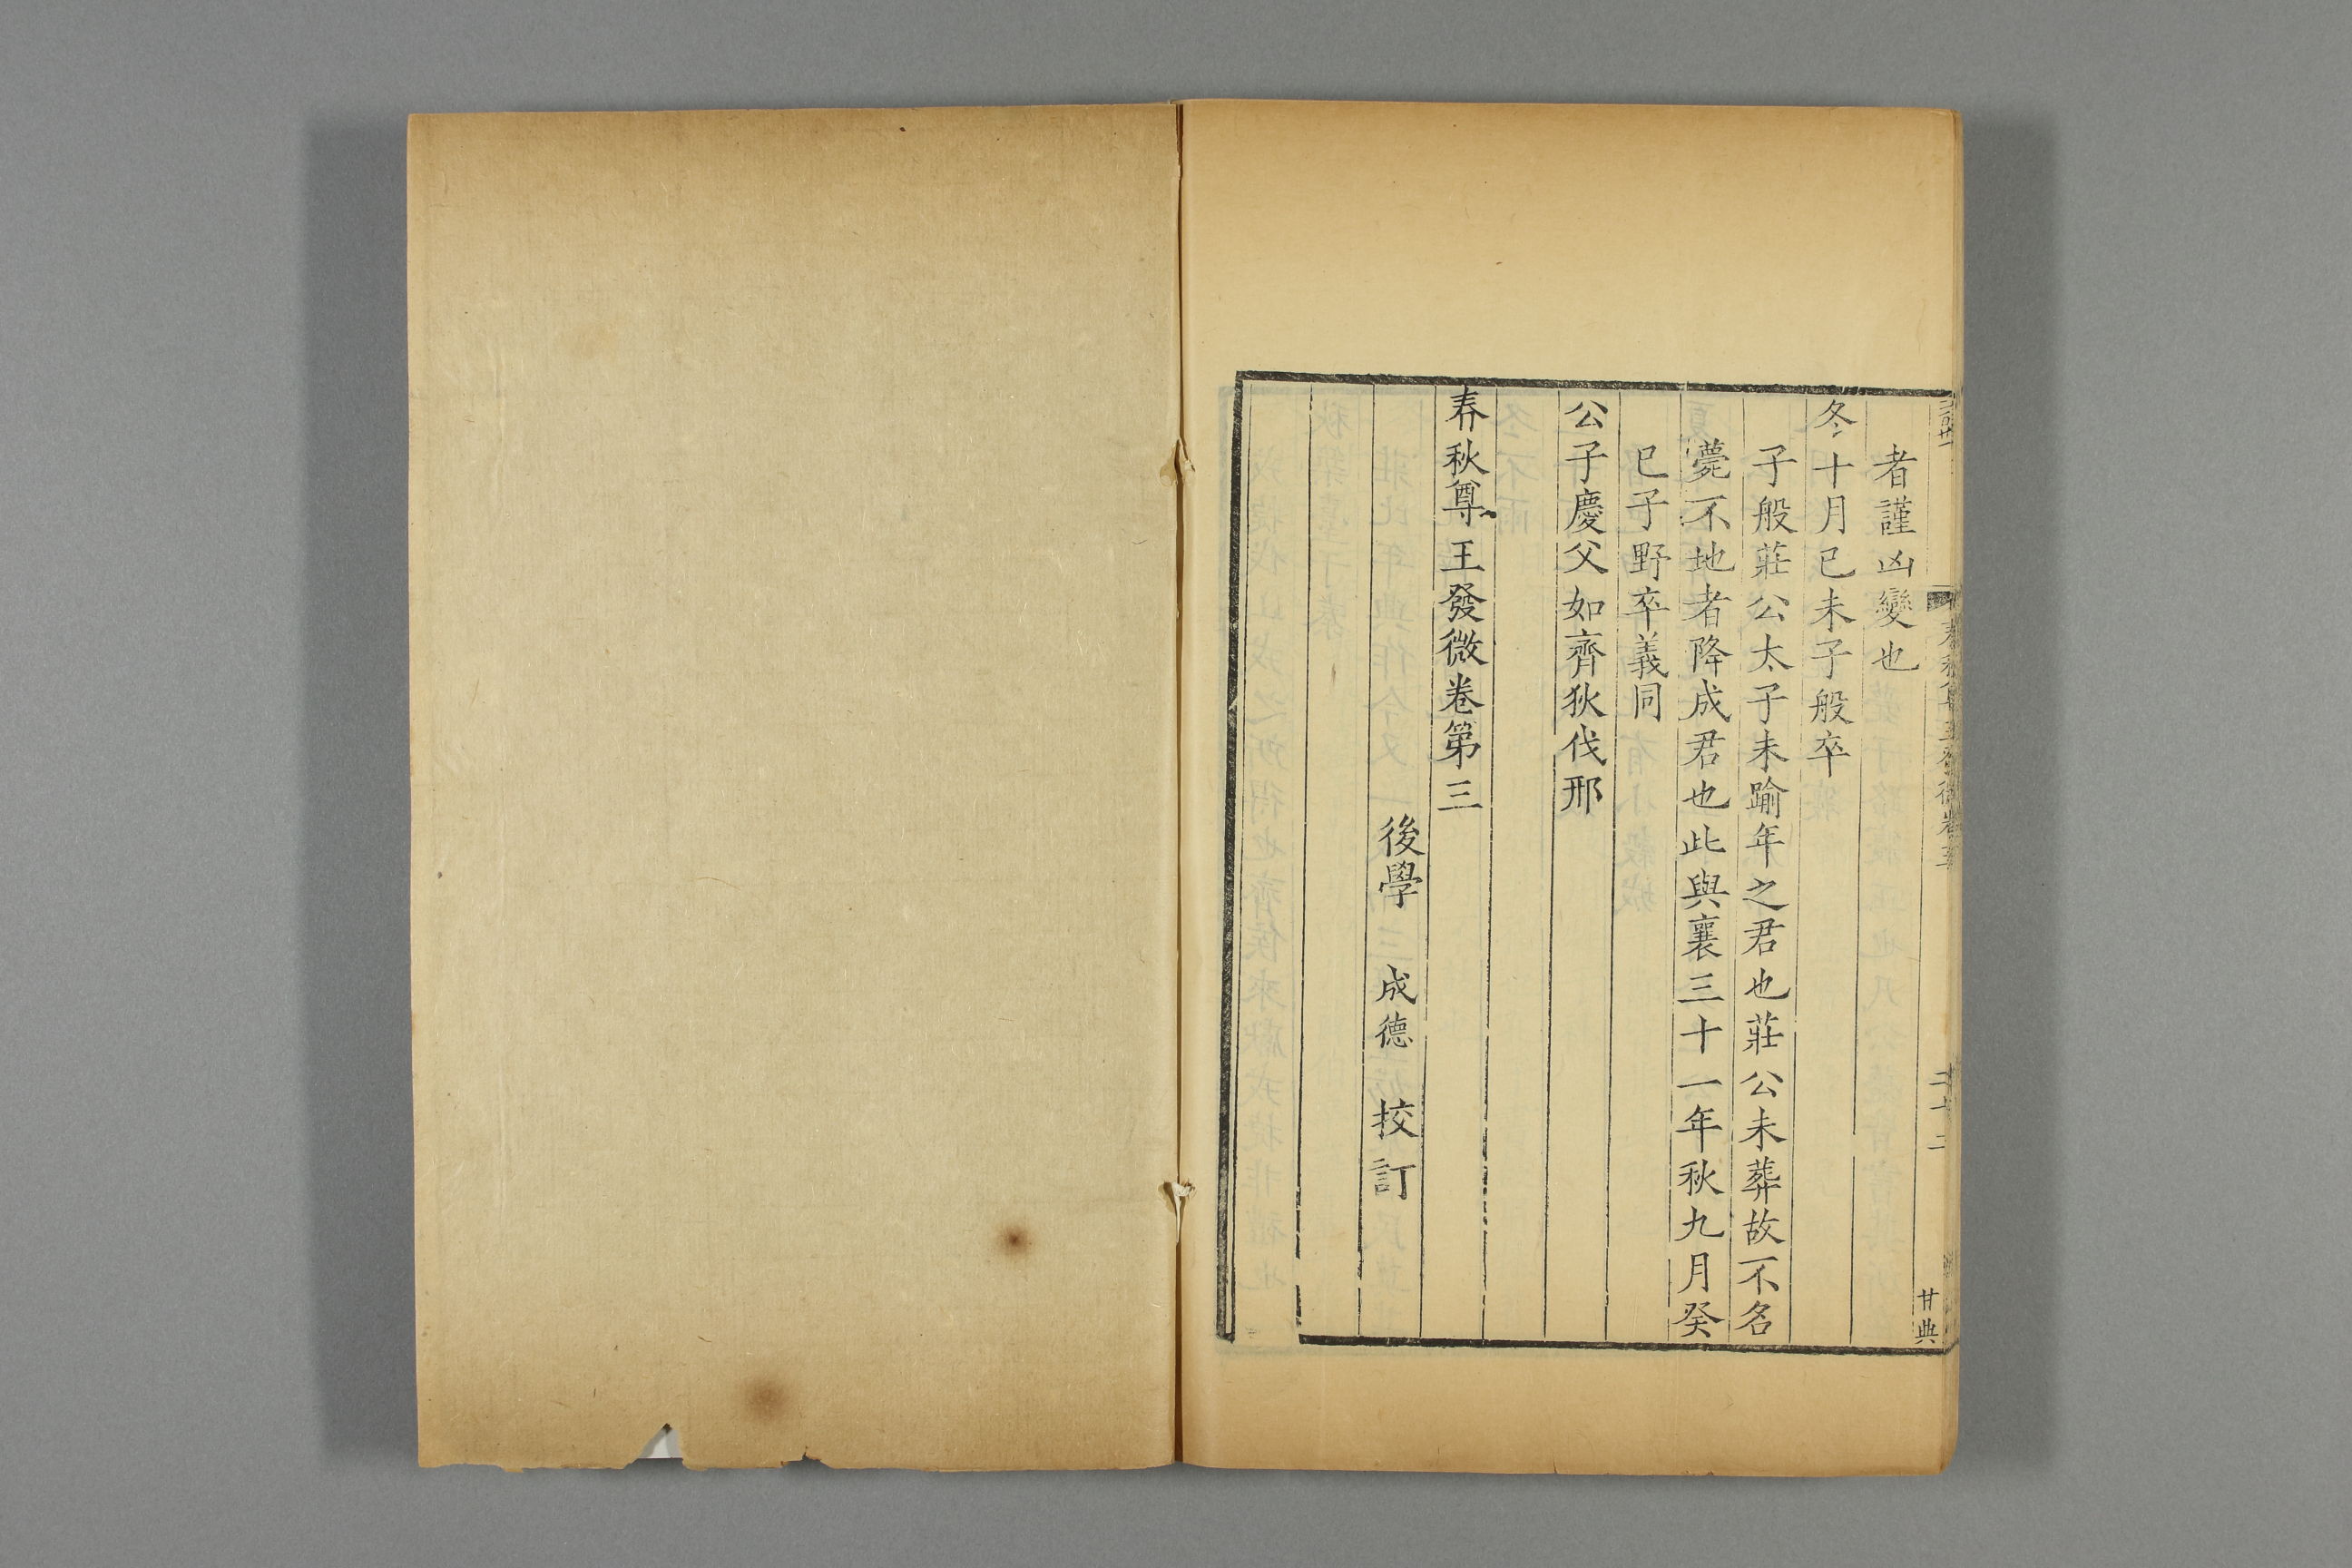 者謹凶變也
冬十月已未子般卒
子般莊公太子未踰年之君也莊公未葬故不名
薨不地者降成君也此與襄三十一年秋九月癸
已子野卒義同
公子慶父如齊狄伐邢
春秋尊王發微卷第三
後學 成德 挍訂
二十二
甘典